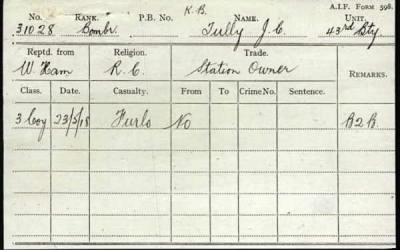 K.B.
A.I.F. FORM 598.
No. RANK. P.B. No. NAME. UNIT.
31028 Bombr. Tully J. C. 43rd Bty.
Reptd. from Religion. Trade. REMARKS.
W Ham R. C. Station Owner
Class. Date. Casualty. From To Crime No. Sentence.
3 Coy 23/5/18 Furlo No B2B